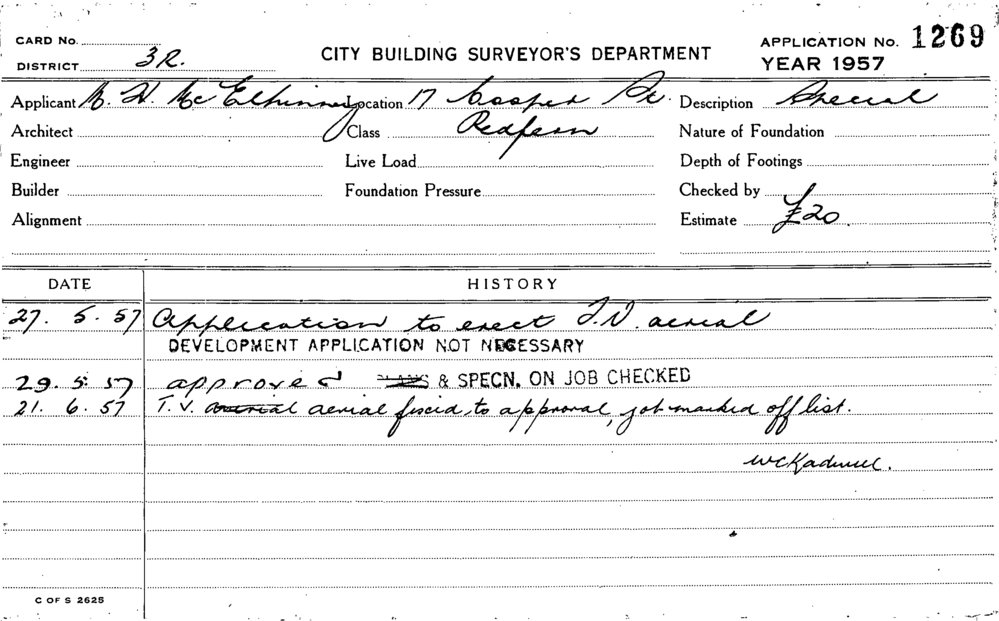 CARD No.
DISTRICT 3R.
CITY BUILDING SURVEYOR'S DEPARTMENT
APPLICATION No. 1269
YEAR 1957
Applicant McElhinney Location 17 Cooper St. Description Special
Architect Class Redfern Nature of Foundation
Engineer Live Load Depth of Footings
Builder Foundation Pressure Checked by
Alignment Estimate £20
DATE HISTORY
27. 5. 57 Application to erect T.V. aerial
DEVELOPMENT APPLICATION NOT NECESSARY
29. 5. 57 approved PLANS & SPECN. ON JOB CHECKED
21. 6. 57 T.V. aerial fixed, to approval, job marked off list.
C OF S 2625